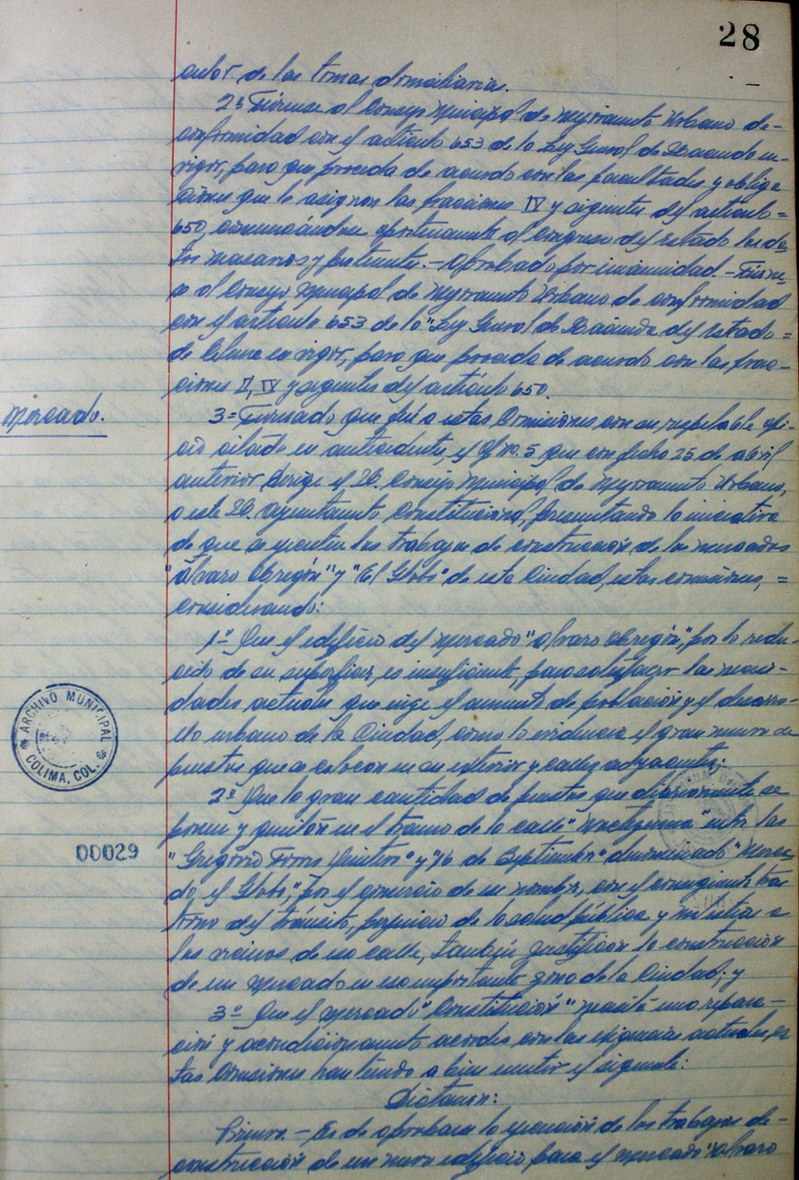 28
ador de las tomas domiciliarias.
2º Túrnese al Consejo Municipal de Mejoramiento Urbano de-
conformidad con el artículo 653 de la Ley General de Hacienda en-
vigor, para que proceda de acuerdo con las facultades y obliga
ciones que le asignan las fracciones IV y siguientes del artículo=
650, comunicándose oportunamente al Congreso del estado los de
.- Aprobado por unanimidad - Túrne-
se al Consejo Municipal de Mejoramiento Urbano de conformidad
con el artículo 653 de la "Ley General de Hacienda del estado=
de Colima en vigor, para que proceda de acuerdo con las frac-
ciones II, IV y siguientes del artículo 650.
Mercado.
3= Turnado que fué a estas Comisiones con su respetable ofi-
cio citado en antecedentes, el of. No. 5 que con fecha 25 de abril
anterior dirige el H. Consejo Municipal de Mejoramiento Urbano,
a este H. Ayuntamiento Constitucional, presentando la iniciativa
de que se ejecuten los trabajos de construcción de los mercados
"Alvaro Obregón" y "El Globo" de esta Ciudad, estas comisiones, =
Considerando:
1º Que el edificio del mercado "Alvaro Obregón", por lo redu-
cido de su superficie, es insuficiente, para satisfacer las necesi-
dades actuales que exige el aumento de población y el desarro-
llo urbano de la Ciudad, como lo evidencia el gran número de
puestos que se colocan en su exterior y calles adyacentes;
ARCHIVO MUNICIPAL
COLIMA, COL.
2º Que la gran cantidad de puestos que diariamente se
ponen y quitan en el tramo de la calle "Moctezuma" entre las
00029
"Gregorio Torres Quintero" y "16 de Septiembre" denominado "Merca-
do el Globo", por el comercio de su nombre, con el consiguiente tras
torno del tránsito, perjuicio de la salud pública y molestias a
los vecinos de esa calle, también justifican la construcción
de un mercado en esa importante zona de la Ciudad; y
3º Que el mercado "Constitución" necesita una repara-
ción y acondicionamiento acordes con las exigencias actuales, es
tas Comisiones han tenido a bien emitir el siguiente:
Dictamen:
Primero.- Es de aprobarse la ejecución de los trabajos de-
construcción de un nuevo edificio para el mercado "Alvaro